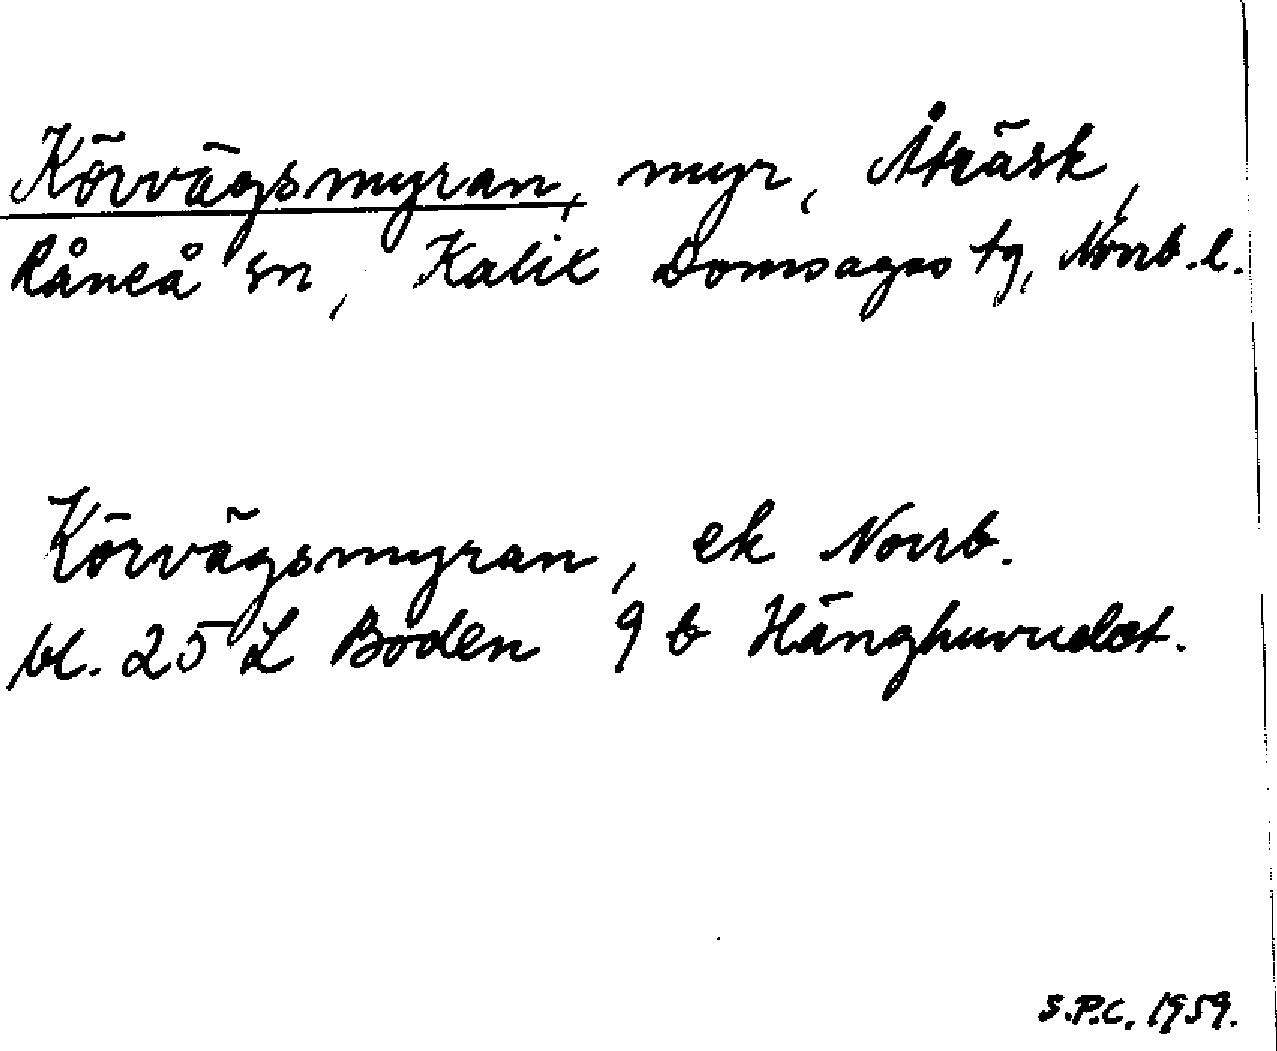 Körvägsmyran, myr, Åträsk,
Råneå sn, Kalix Domsagas tg, Norrb. l.
Körvägsmyran, ek Norrb.
bl. 25 L Boden 9 b Hänghuvudet.
S.P.C. 1959.